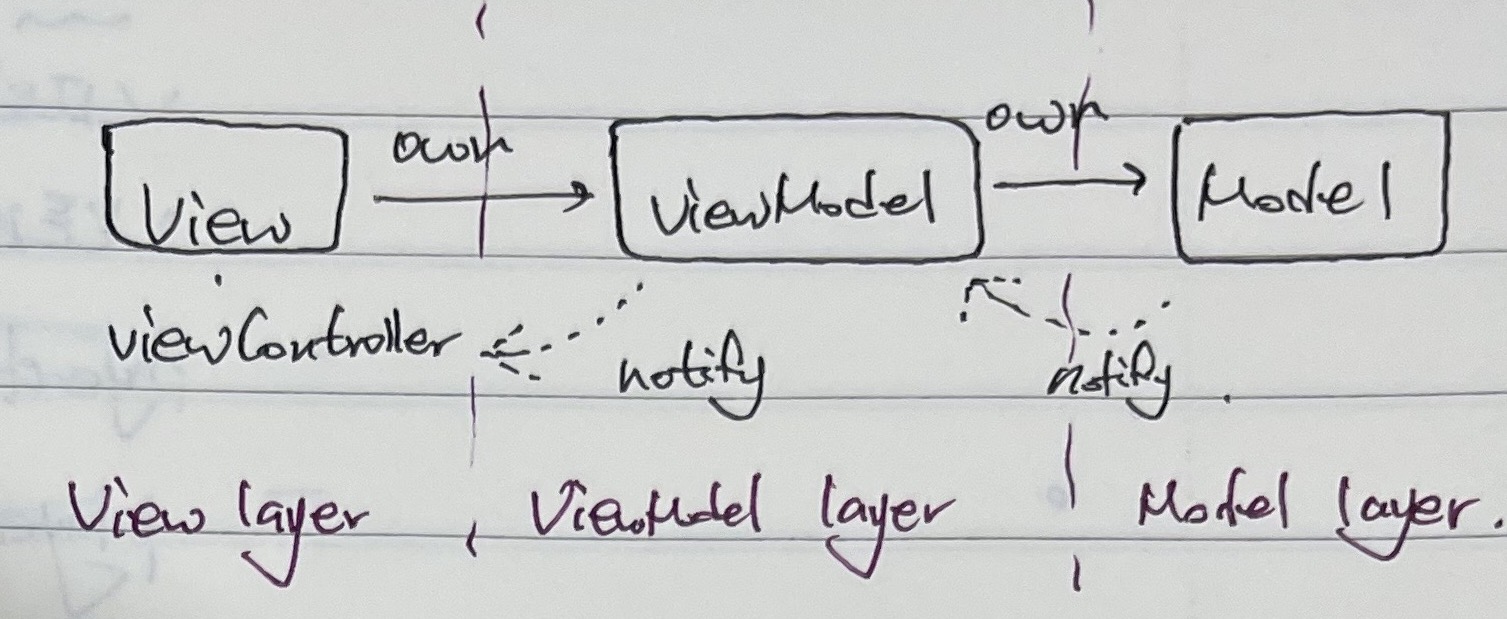 own own
View ViewModel Model
viewController notify notify
View layer ViewModel layer Model layer.